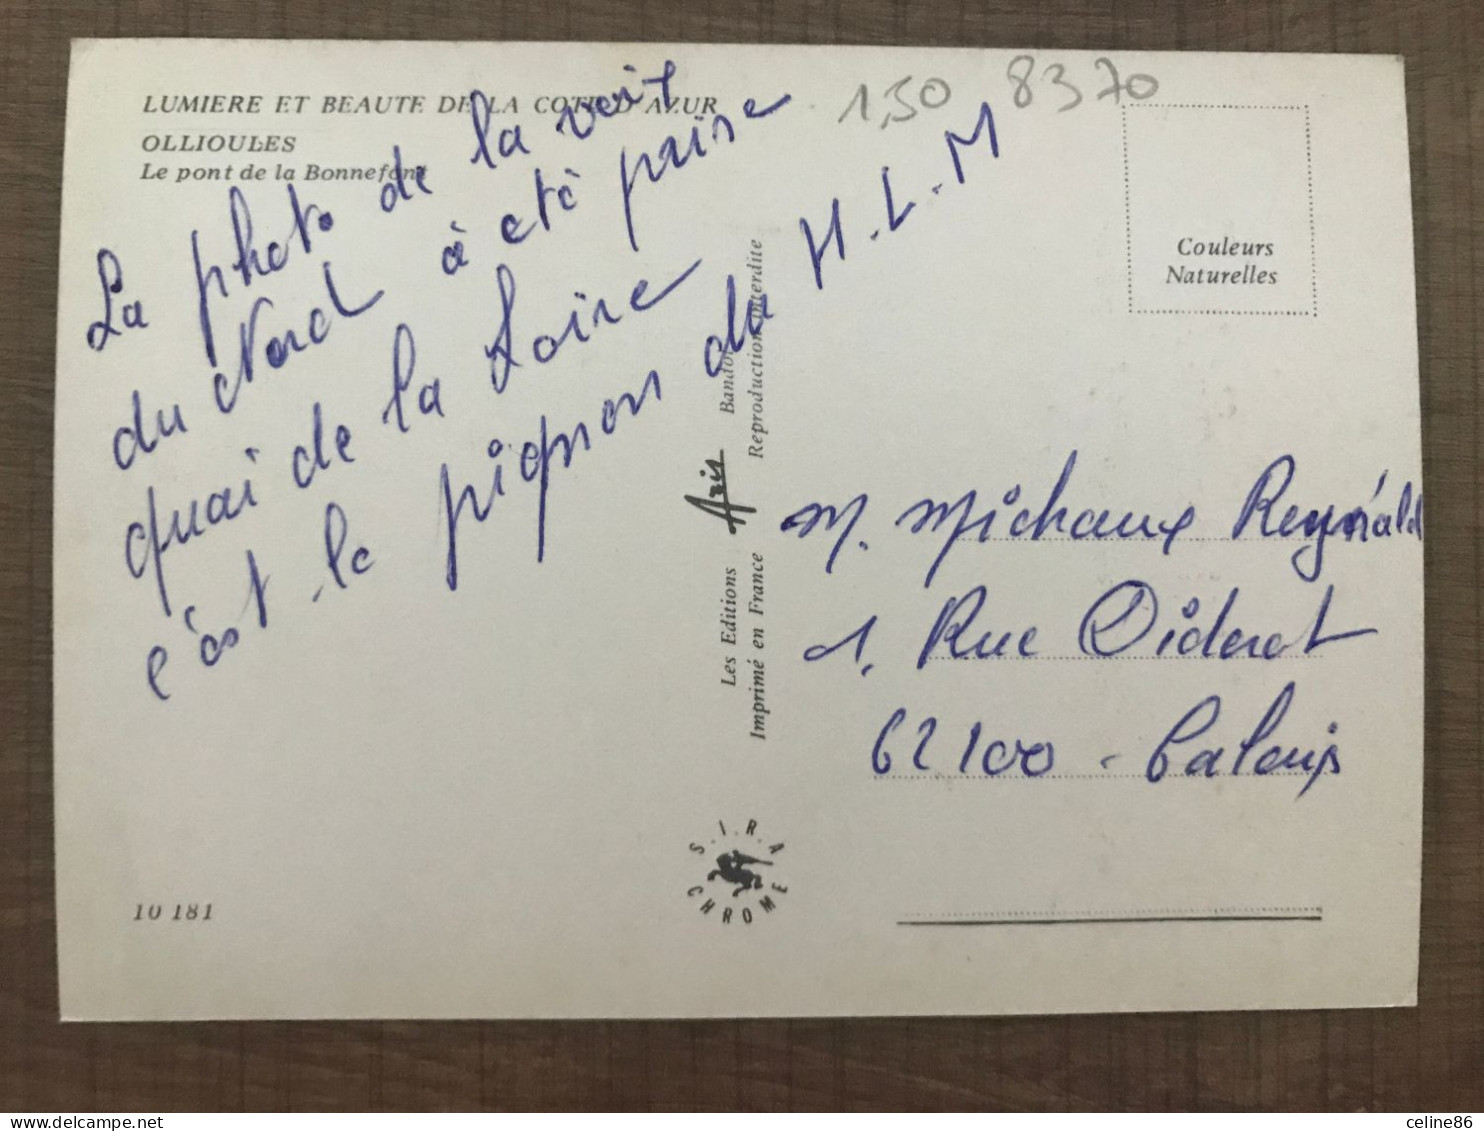 1,50 8370
LUMIERE ET BEAUTE DE LA COTE D'AZUR
OLLIOULES
Le pont de la Bonnefont
La photo de la voix
du Nord à eté prise
quai de la Loire
c'est le pignon du H.L.M
Couleurs
Naturelles
Les Editions Aris Bandol
Imprimé en France Reproduction interdite
M. Michaux Reynald
1. Rue Diderot
62100 - Calais
S.I.R.A
CHROME
10 181
celine86